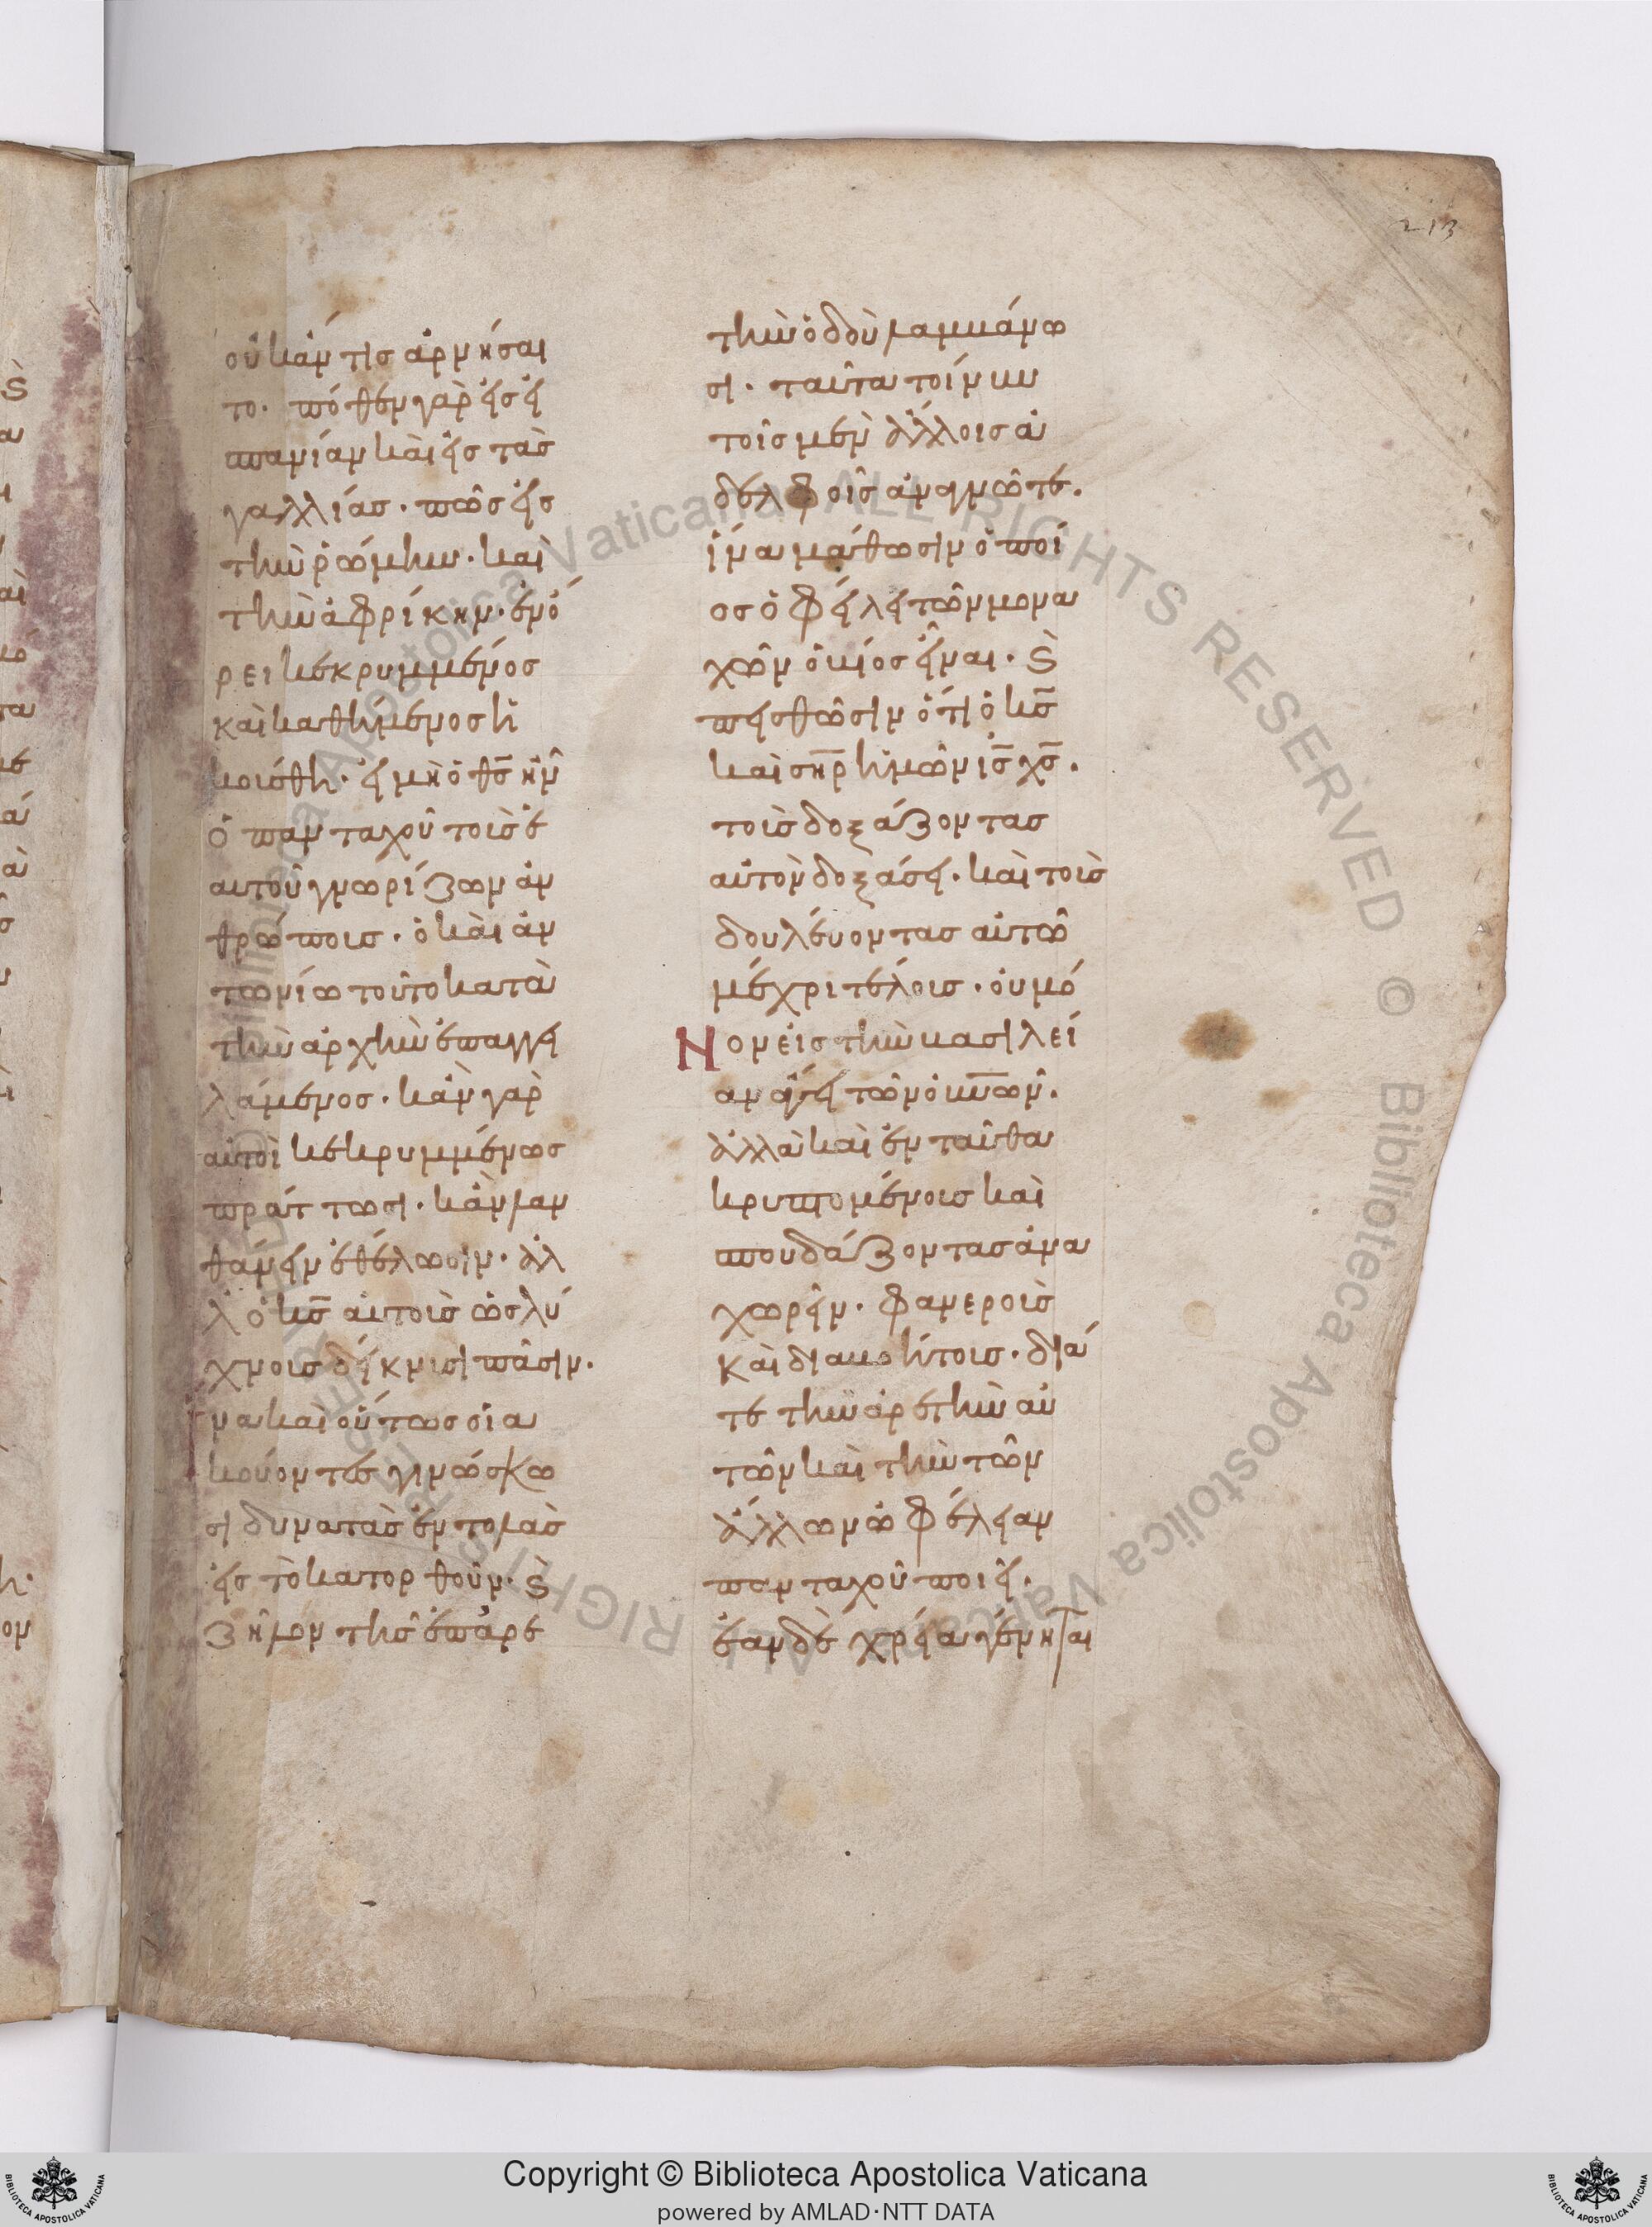 213
οὐκἄν τις ἀρνήσαι
το· πόθεν γὰρ εἰς ἱ
σπανίαν καὶ εἰς τὰς
γαλλίας· πῶς εἰς
τὴν ῥώμην· καὶ
τὴν ἀφρίκην· ἐν ὄ
ρει κεκρυμμένος
καὶ καθήμενος ἠ
κούσθη· εἰ μὴ ὁ θς ἦν
ὁ πανταχοῦ τοὺς ἑ
αυτοῦ γνωρίζων ἀν
θρώπους· ὁ καὶ ἀν
τωνίω τοῦτο κατὰ
τὴν ἀρχὴν ἐπαγγει
λάμενος· κἂν γὰρ
αὐτοὶ κεκρυμμένως
πράττωσι· κἂν λαν
θάνειν ἐθέλωσιν· ἀλ
λ ὁ κς αὐτοὺς ὡς λύ
χνους δείκνυσι πᾶσιν·
ἵνα καὶ οὕτως οἱ α
κούοντες γινώσκω
σι δυνατὰς ἐντολὰς
εἰς τὸ κατορθοῦν· καὶ
ζῆλον τῆς ἐπ ἀρε
τὴν ὁδοῦ λαμβάνω
σι· ταῦτα τοίνυν
τοῖς μὲν ἄλλοις ἀ
δελφοῖς ἀνάγνωτε·
ἵνα μάθωσιν ὁποῖ
ος ὀφείλει τῶν μονα
χῶν ὁ βίος εἶναι· καὶ
πεισθῶσιν ὅτι ὁ κς
καὶ σηρ ἡμῶν ις χς·
τοὺς δοξάζοντας
αὐτὸν δοξάσει· καὶ τοὺς
δουλεύοντας αὐτῶ
μέχρι τέλους· οὐ μό
Νον εἰς τὴν βασιλεί
αν ἄγει τῶν οὐνῶν·
ἀλλὰ καὶ ἐνταῦθα
κρυπτομένους καὶ
σπουδάζοντας ἀνα
χωρεῖν· φανεροὺς
καὶ διαβοήτους· διά
τε τὴν ἀρετὴν αὐ
τῶν καὶ τὴν τῶν
ἄλλων ὠφέλειαν
πανταχοῦ ποιεῖ·
ἐὰν δὲ χρεία γένηται
Copyright © Biblioteca Apostolica Vaticana
powered by AMLAD·NTT DATA